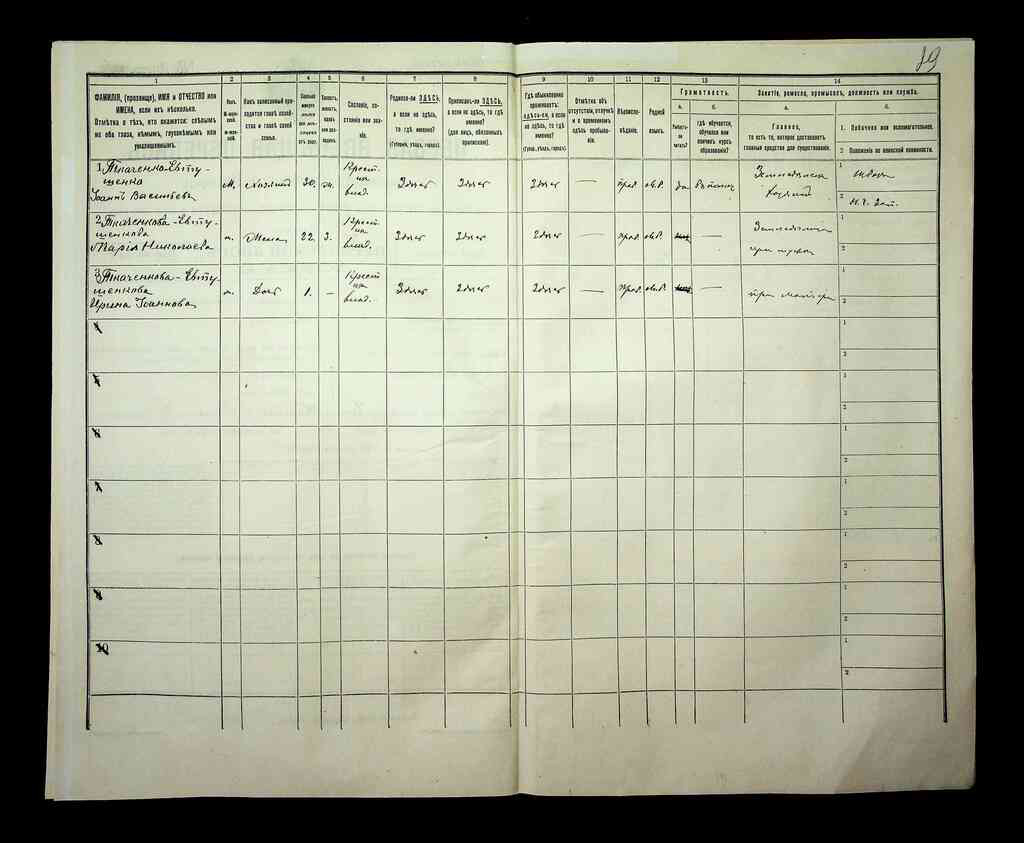 89
1 2 3 4 5 6 7 8 9 10 11 12 13 14
ФАМИЛІЯ, (прозвище), ИМЯ и ОТЧЕСТВО или
ИМЕНА, если ихъ нѣсколько.
Отмѣтка о тѣхъ, кто окажется: слѣпымъ
на оба глаза, нѣмымъ, глухонѣмымъ или
умалишеннымъ.
Полъ.
М-мужской.
Ж-женскій.
Какъ записанный при-
ходится главѣ хозяй-
ства и главѣ своей
семьи.
Сословіе, со-
стояніе или зва-
ніе.
Родился-ли ЗДѢСЬ,
а если не здѣсь,
то гдѣ именно?
(Губернія, уѣздъ, городъ).
Приписанъ-ли ЗДѢСЬ,
а если не здѣсь, то гдѣ
именно?
(для лицъ, обязанныхъ
припискою).
Гдѣ обыкновенно
проживаетъ:
здѣсь-ли, а если
не здѣсь, то гдѣ
именно?
(Губер., уѣздъ, городъ).
Отмѣтка объ
отсутствіи, отлучкѣ
и о временномъ
здѣсь пребыва-
ніи.
Вѣроиспо-
вѣданіе.
Родной
языкъ.
Грамотность.
а.
Умѣетъ-
ли
читать?
б.
гдѣ обучается,
обучался или
кончилъ курсъ
образованія?
Занятіе, ремесло, промыселъ, должность или служба.
а.
Главное,
то есть то, которое доставляетъ
главныя средства для существованія.
б.
1. Побочное или вспомогательное.
2 Положеніе по воинской повинности.
1 Ткаченко-Евту-
шенко
Іоаннъ Васильевъ
М.
Хозяинъ
30.
ж.
Крест.
из
влад.
Здѣсь
Здѣсь
Здѣсь
—
прав.
да
Земледѣлецъ
хозяинъ
1
2
2 Ткаченкова-Евту-
шенкова
Марія Николаева
ж.
Жена
22.
З.
Крест
из
влад.
Здѣсь
Здѣсь
Здѣсь
—
прав.
—
1
2
3 Ткаченкова-Евту-
шенкова
Ирина Іоаннова
ж.
Дочь
1.
—
Крест
из
влад.
Здѣсь
Здѣсь
Здѣсь
—
прав.
—
при матери
1
2
4
1
2
5
1
2
6
1
2
7
1
2
8
1
2
9
1
2
10
1
2